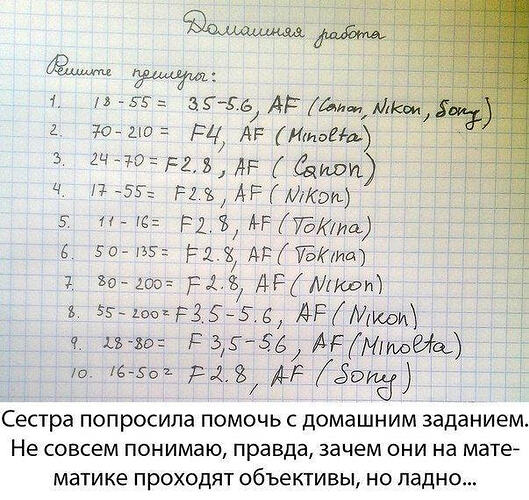 Домашняя работа
Решите примеры:
1. 18-55= 3.5-5.6, AF (Canon, Nikon, Sony)
2. 70-210= F4, AF (Minolta)
3. 24-70= F2.8, AF (Canon)
4. 17-55= F2.8, AF (Nikon)
5. 11-16= F2.8, AF (Tokina)
6. 50-135= F2.8, AF (Tokina)
7. 80-200= F2.8, AF (Nikon)
8. 55-200= F3.5-5.6, AF (Nikon)
9. 28-80= F 3,5-5.6, AF (Minolta)
10. 16-50= F2.8, AF (Sony)
Сестра попросила помочь с домашним заданием.
Не совсем понимаю, правда, зачем они на мате-
матике проходят объективы, но ладно...